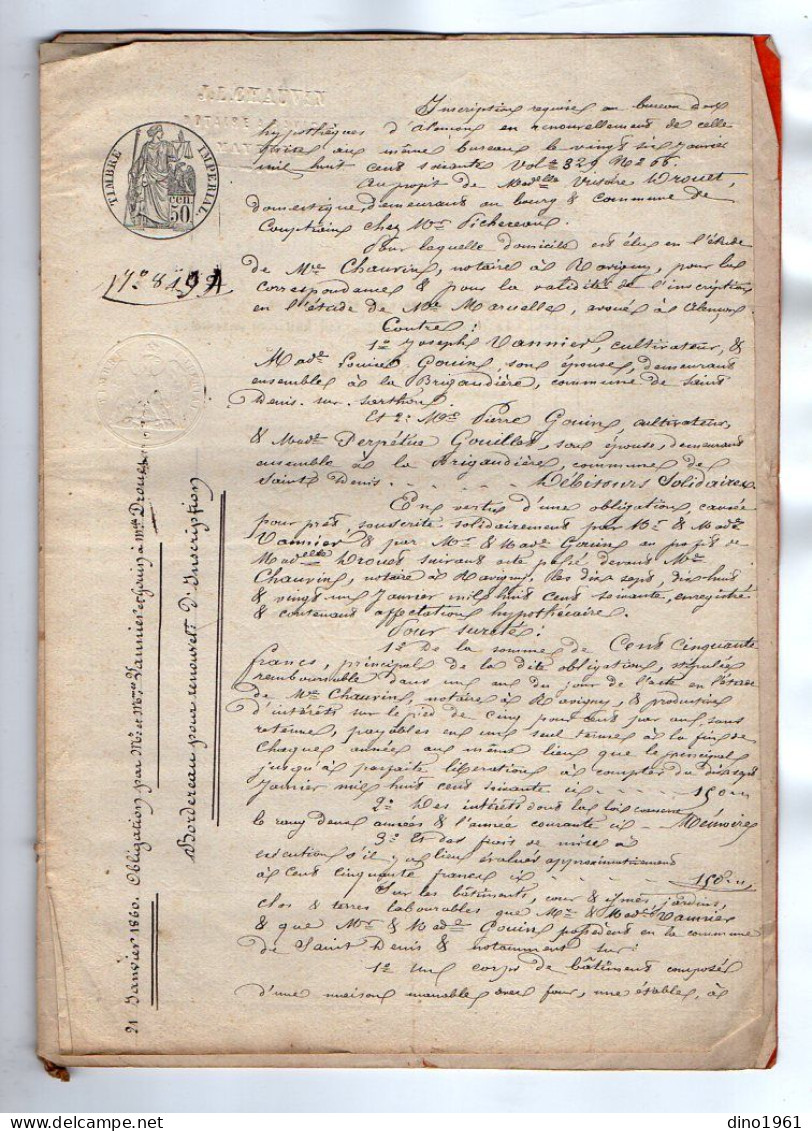 J. L. CHAUVIN
TIMBRE IMPERIAL
50 CEN.
N.o 8191
21 Janvier 1860. Obligation par Mr. et Mme. Vannier et Gouin à Melle Drouet
Bordereau pour renouvelt d'Inscription
Inscription requise au bureau des
hypothèques d'Alençon en renouvellement de celle
prise au même bureau le vingt six Janvier
mil huit cent soixante Vol= 329 No 266.
Au profit de Madelle Drouet,
domestique, demeurant au bourg & commune de
Couptrain chez Mr. Pichereau.
Pour laquelle domicile est élu en l'étude
de Mtre Chauvin, notaire à Ravigny, pour la
correspondance & pour la validité de l'inscription
en l'étude de Me Marcelle, avoué à Alençon
Contre:
1o Joseph Vannier, cultivateur, &
Made Louise Gouin, son épouse, demeurant
ensemble à la Brigaudière, commune de Saint
Denis-sur-Sarthon.
Et 2o Mr Pierre Gouin, cultivateur,
& Made Perpétue Gouillot, son épouse, demeurant
ensemble à la Brigaudière, commune de
Saint Denis. Débiteurs Solidaires.
En vertu d'une obligation, causée
pour prêt, souscrite solidairement par Mr & Made
Vannier & par Mr & Made Gouin au profit de
Madelle Drouet suivant acte passé devant Mtre
Chauvin, notaire à Ravigny, les dix sept, dix huit
& vingt un Janvier mil huit cent soixante, enregistré
& contenant affectation hypothécaire.
Pour sureté:
1o De la somme de Cent cinquante
francs, principal de la dite obligation, stipulée
remboursable dans un an du jour de l'acte en l'étude
de Mtre Chauvin, notaire à Ravigny, & productive
d'intérêts sur le pied de cinq pour cent par an, sans
retenue, payables en un seul terme à la fin de
chaque année au même lieu que le principal
jusqu'à parfaite libération à compter du dix sept
Janvier mil huit cent soixante ci 150 "
2o Des intérêts dont la loi conserve
le rang deux années & l'année courante ci Mémoire
3o Et des frais de mise à
exécution s'il y a lieu évalués approximativement
à cent cinquante francs ci 150 "
Sur les bâtiments, cour & issues, jardins,
clos & terres labourables que Mr & Made Vannier
& que Mr & Made Gouin possèdent en la commune
de Saint Denis & notamment sur:
1o Un corps de bâtiment composé
d'une maison manable avec four, une étable, à
dino1961